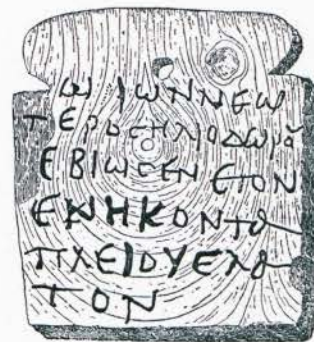 ωιωΝΝΕω
ΤΕΡΟϹΗΛΙΟΔωΡα
ΕΒΙωϹΕΝ ΕΤΟΝ
ΕΝΗΚΟΝΤα
ΠΛΕΙΟΥΕΛα
ΤΟΝ